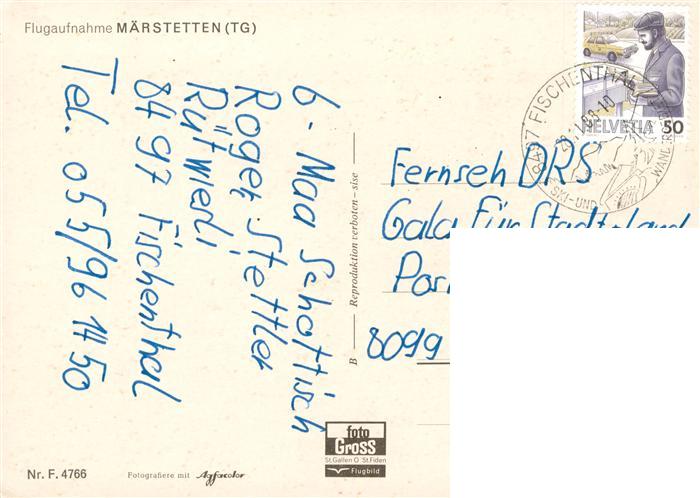 Flugaufnahme MÄRSTETTEN (TG)
6-Maa Schottisch
Roger Stettler
Rütweli
8497 Fischenthal
Tel. 055/96 1450
B — Reproduktion verboten - sise —
HELVETIA 50
8497 FISCHENTHAL
SKI- UND WANDER
Fernseh DRS
Gala für Stadt + Land
8099
foto
GROSS
St. Gallen O St. Fiden
Flugbild
Nr. F. 4766
Fotografiere mit Agfacolor